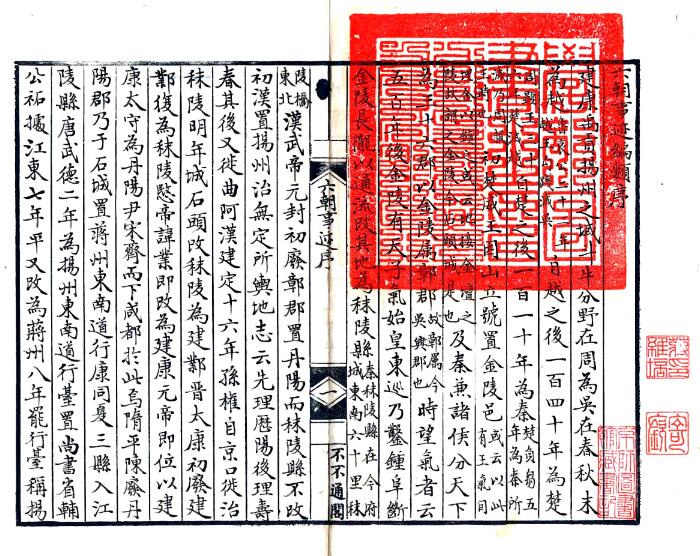 六朝事迹編類序
建康禹貢揚州之域斗牛分野在周為吳在春秋末
為越魯哀公二十年越平句踐滅吳自越之後一百四十年為楚
周顯王三十六年楚滅越自楚之後一百一十年為秦楚負芻五年為秦所
初楚威王因山立號置金陵邑或云以此有王氣因
埋金以鎮之或云地接金壇之陵故謂之金陵今石頭城是也及秦兼諸侯分天下
為三十六郡以金陵屬鄣郡故鄣屬今吳興郡也時望氣者云
五百年後金陵有天子氣始皇東巡乃鑿鍾阜斷
金陵長隴以通流改其地為秣陵縣秦秣陵縣在今府城東南六十里秣
六朝事迹序
一
不不通閣
陵橋東北漢武帝元封初廢鄣郡置丹陽而秣陵縣不改
初漢置揚州治無定所輿地志云先理歷陽後理壽
春其後又徙曲阿漢建定十六年孫權自京口徙治
秣陵明年城石頭改秣陵為建鄴晉太康初廢建
鄴復為秣陵愍帝諱業即改為建康元帝即位以建
康太守為丹陽尹宋齊而下咸都於此焉隋平陳廢丹
陽郡乃于石城置蔣州東南道行康同夏三縣入江
陵縣唐武德二年為揚州東南道行臺置尚書省輔
公祏據江東七年平又改為蔣州八年罷行臺稱揚